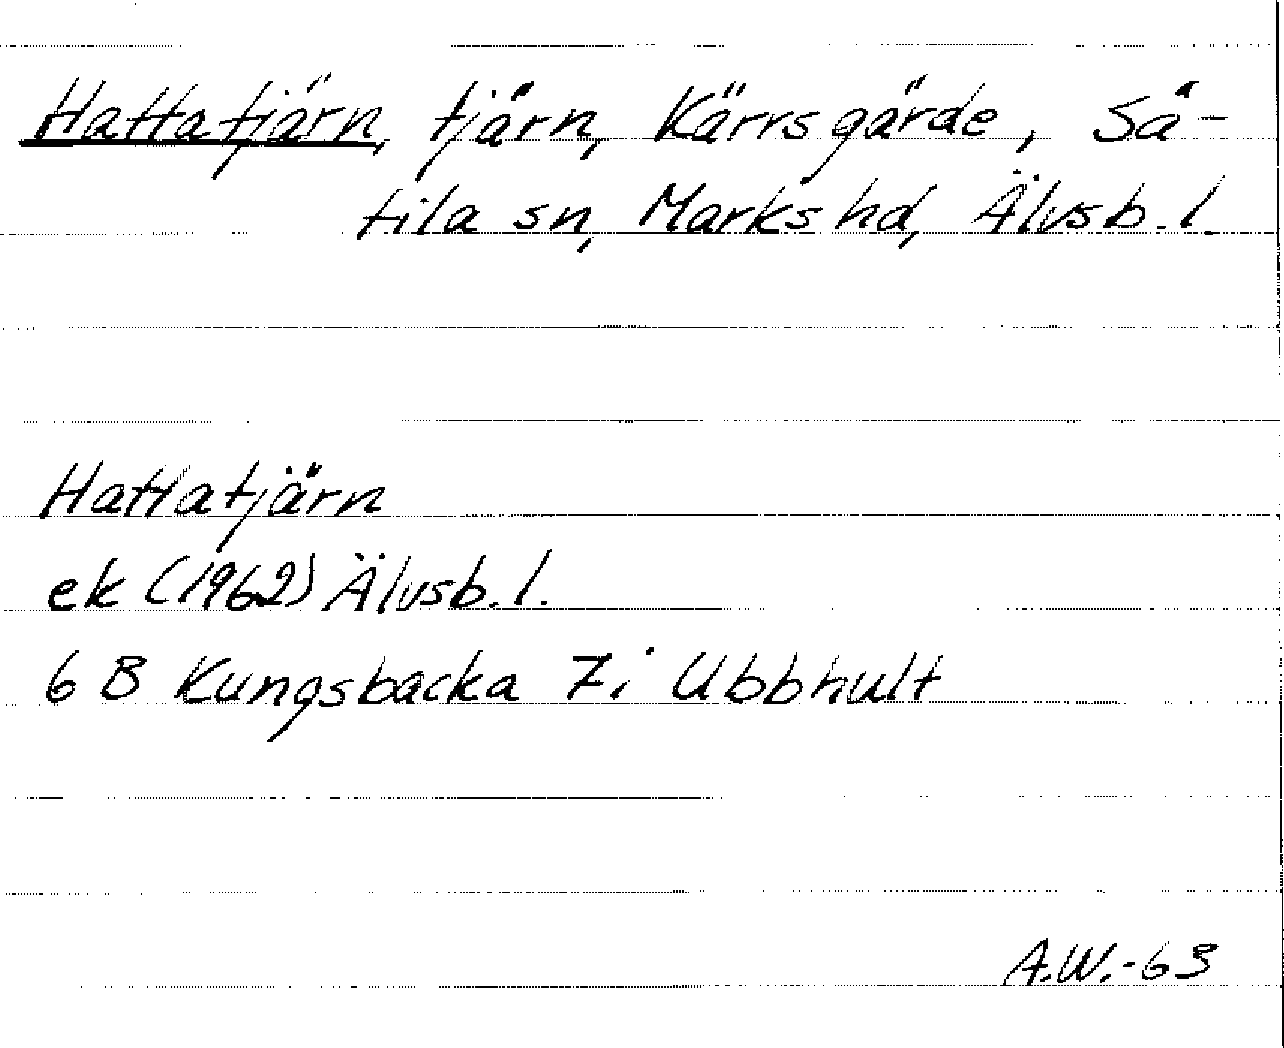 Hattatjärn, tjärn, Kärrsgärde, Sä-
tila sn, Marks hd, Älvsb. l.
Hattatjärn
ek (1962) Älvsb. l.
6 B Kungsbacka 7i Ubbhult
A.W.-63